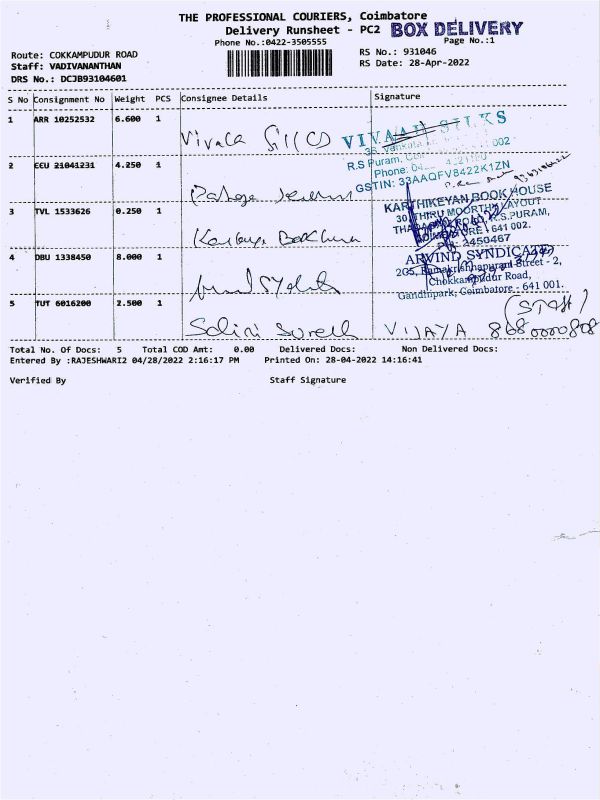 THE PROFESSIONAL COURIERS, Coimbatore
Delivery Runsheet - PC2 BOX DELIVERY
Phone No.:0422-3505555 Page No.:1
Route: COKKAMPUDUR ROAD RS No.: 931046
Staff: VADIVANANTHAN RS Date: 28-Apr-2022
DRS No.: DCJB93104601
S No Consignment No Weight PCS Consignee Details Signature
1 ARR 10252532 6.600 1
VIVAAH SILKS
R.S Puram, 002
Phone: 04
GSTIN: 33AAQFV8422K1ZN
2 CCU 21041231 4.250 1
3 TVL 1533626 0.250 1
KARTHIKEYAN BOOK HOUSE
30, THIRU MOORTHY LAYOUT
ROAD, R.S.PURAM,
COIMBATORE - 641 002.
2450467
4 DBU 1338450 8.000 1
ARVIND SYNDICATE
2G5, Ramakrishnapuram Street - 2,
Chokkampudur Road,
Gandhipark, Coimbatore - 641 001.
5 TUT 6016200 2.500 1
(STAFF)
VIJAYA
Total No. Of Docs: 5 Total COD Amt: 0.00 Delivered Docs: Non Delivered Docs:
Entered By :RAJESHWARI2 04/28/2022 2:16:17 PM Printed On: 28-04-2022 14:16:41
Verified By Staff Signature